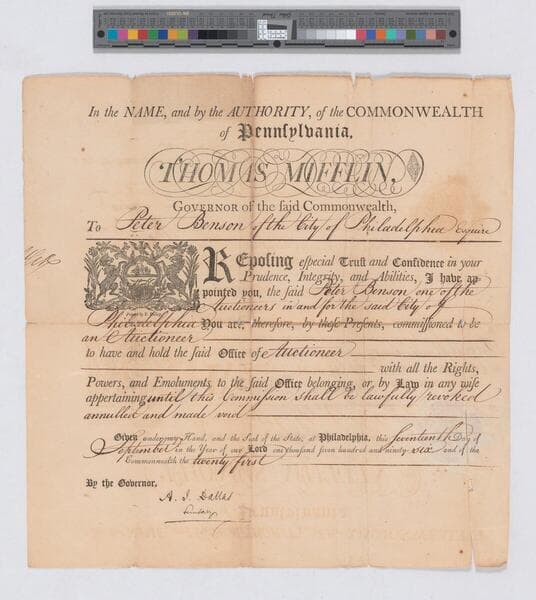 In the NAME, and by the AUTHORITY, of the COMMONWEALTH
of Pennſylvania,
THOMAS MIFFLIN,
GOVERNOR of the ſaid Commonwealth,
To Peter Benson of the City of Philadelphia esquire
REpoſing eſpecial Truſt and Confidence in your
Prudence, Integrity, and Abilities, I have ap-
pointed you, the ſaid Peter Benson one of the
Auctioneers in and for the said City of
Philadelphia You are, therefore, by theſe Preſents, commiſſioned to be
an Auctioneer
to have and hold the ſaid Office of Auctioneer
with all the Rights,
Powers, and Emoluments to the ſaid Office belonging, or by Law in any wiſe
appertaining until this Commission shall be lawfully revoked
annulled and made void
Given under my Hand, and the Seal of the State, at Philadelphia, this Seventeenth Day of
September in the Year of our Lord one thouſand ſeven hundred and ninety six and of the
Commonwealth the twenty first
By the Governor,
A. J. Dallas